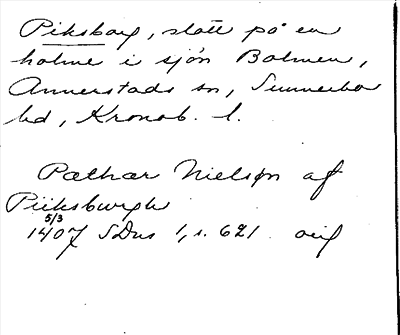 Piksborg, slott på en
holme i sjön Bolmen,
Annerstads sn, Sunnerbo
hd, Kronob. l.
Pæthar Nielsøn af
Piiksburgh
5/3
1407 SDns 1, s. 621. orig